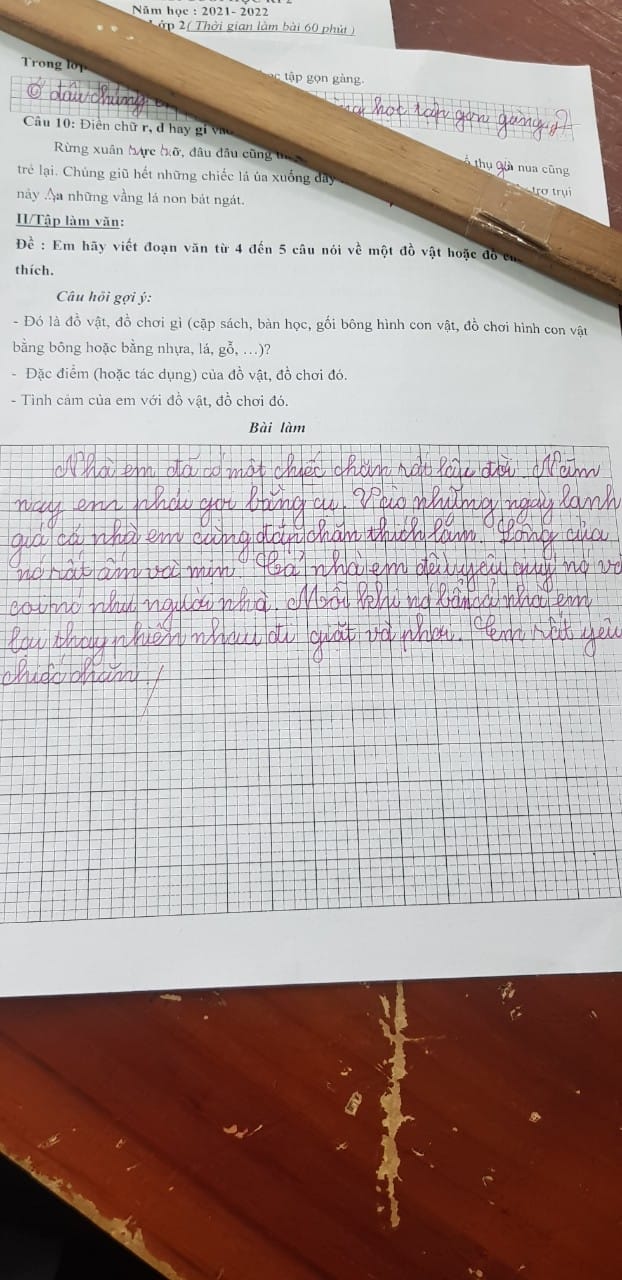 Năm học : 2021- 2022
Lớp 2( Thời gian làm bài 60 phút )
Trong lớp
tập gọn gàng.
Ở đâu chúng em
học tập gọn gàng ?
Câu 10: Điền chữ r, d hay gi vào
Rừng xuân rực rỡ, đâu đâu cũng
thụ già nua cũng
trẻ lại. Chúng giũ hết những chiếc lá úa xuống
trơ trụi
này ra những vầng lá non bát ngát.
II/Tập làm văn:
Đề : Em hãy viết đoạn văn từ 4 đến 5 câu nói về một đồ vật hoặc đồ
thích.
Câu hỏi gợi ý:
- Đó là đồ vật, đồ chơi gì (cặp sách, bàn học, gối bông hình con vật, đồ chơi hình con vật
bằng bông hoặc bằng nhựa, lá, gỗ, …)?
- Đặc điểm (hoặc tác dụng) của đồ vật, đồ chơi đó.
- Tình cảm của em với đồ vật, đồ chơi đó.
Bài làm
Nhà em đã có một chiếc chăn rất lâu đời. Năm
nay em phải gọi bằng cụ. Vào những ngày lanh
giá cả nhà em cùng đắp chăn thích lắm. Lông của
nó rất ấm và mịn. Cả nhà em đều yêu quý nó và
coi nó như người nhà. Mỗi khi nó bẩn cả nhà em
lại thay nhiên nhau đi giặt và phơi. Em rất yêu
chiếc chăn.